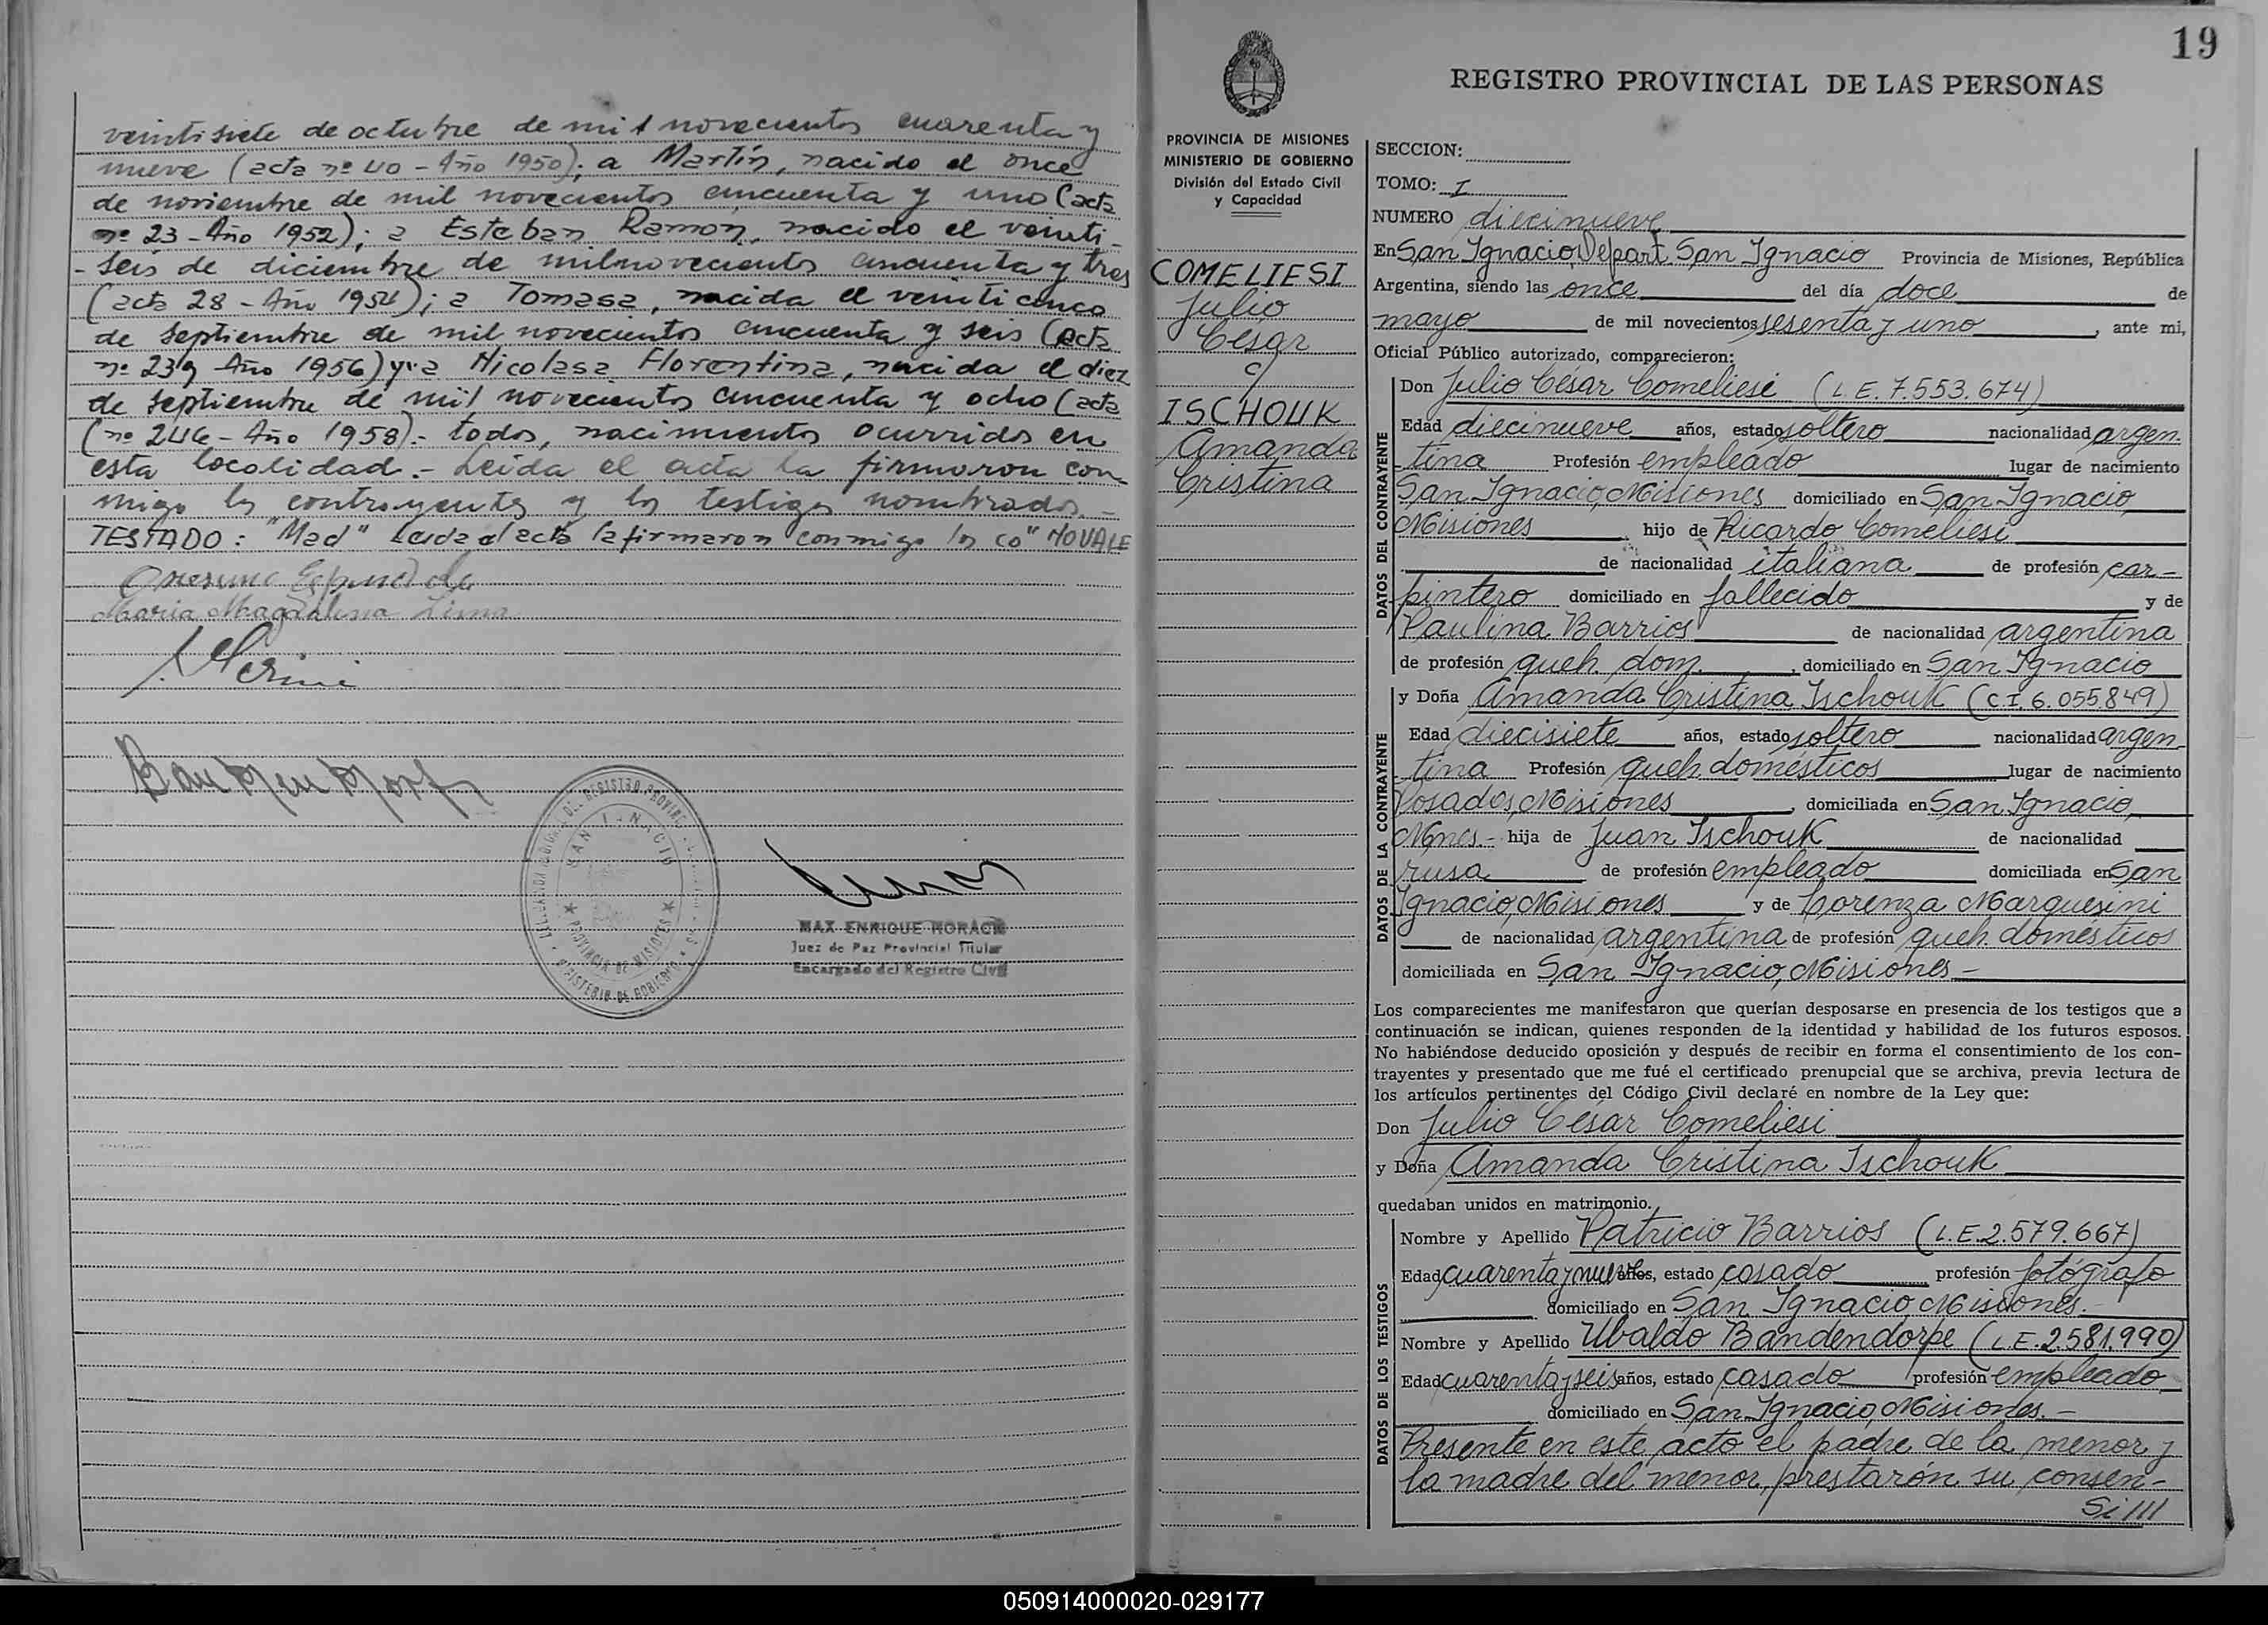 veintisiete de octubre de mil novecientos cuarenta y
nueve (acta nº 40 - Año 1950); a Martín, nacido el once
de noviembre de mil novecientos cincuenta y uno (acta
nº 23 - Año 1952); a Esteban Ramón, nacido el veinti-
-seis de diciembre de mil novecientos cincuenta y tres
(acta 28 - Año 1954); a Tomasa, nacida el veinticinco
de septiembre de mil novecientos cincuenta y seis (acta
nº 239 Año 1956) y a Nicolasa Florentina, nacida el diez
de septiembre de mil novecientos cincuenta y ocho (acta
(nº 246 - Año 1958).- todos, nacimientos ocurridos en
esta localidad.- Leída el acta la firmaron con
migo los contrayentes y los testigos nombrados.-
TESTADO: "Mad" Leída el acta la firmaron conmigo los co" NO VALE
Maria Magdalena Lima
DELEGACION DEL REGISTRO PROVINCIAL
SAN IGNACIO
PROVINCIA DE MISIONES
MINISTERIO DE GOBIERNO
MAX ENRIQUE NORACK
Juez de Paz Provincial Titular
Encargado del Registro Civil
19
REGISTRO PROVINCIAL DE LAS PERSONAS
PROVINCIA DE MISIONES
MINISTERIO DE GOBIERNO
División del Estado Civil
y Capacidad
COMELIESI
Julio
César
c/
ISCHOUK
Amanda
Cristina
SECCION:
TOMO: I
NUMERO diecinueve
En San Ignacio, Depart. San Ignacio Provincia de Misiones, República
Argentina, siendo las once del día doce de
mayo de mil novecientos sesenta y uno, ante mi,
Oficial Público autorizado, comparecieron:
DATOS DEL CONTRAYENTE
Don Julio César Comeliesi (L.E. 7.553.674)
Edad diecinueve años, estado soltero nacionalidad argen-
tina Profesión empleado lugar de nacimiento
San Ignacio, Misiones domiciliado en San Ignacio
Misiones hijo de Ricardo Comeliesi
de nacionalidad italiana de profesión car-
pintero domiciliado en fallecido y de
Paulina Barrios de nacionalidad argentina
de profesión queh. dom. , domiciliado en San Ignacio
DATOS DE LA CONTRAYENTE
y Doña Amanda Cristina Ischouk (C.I. 6.055.849)
Edad diecisiete años, estado soltero nacionalidad argen-
tina Profesión queh. domésticos lugar de nacimiento
Posadas, Misiones , domiciliada en San Ignacio,
Mnes.- hija de Juan Ischouk de nacionalidad
rusa de profesión empleado domiciliada en San
Ignacio, Misiones y de Lorenza Marquesini
de nacionalidad argentina de profesión queh. domésticos
domiciliada en San Ignacio, Misiones -
Los comparecientes me manifestaron que querían desposarse en presencia de los testigos que a
continuación se indican, quienes responden de la identidad y habilidad de los futuros esposos.
No habiéndose deducido oposición y después de recibir en forma el consentimiento de los con-
trayentes y presentado que me fué el certificado prenupcial que se archiva, previa lectura de
los artículos pertinentes del Código Civil declaré en nombre de la Ley que:
Don Julio César Comeliesi
y Doña Amanda Cristina Ischouk
quedaban unidos en matrimonio.
DATOS DE LOS TESTIGOS
Nombre y Apellido Patricio Barrios (L.E. 2.579.667)
Edad cuarenta y nueve años, estado casado profesión fotógrafo
domiciliado en San Ignacio Misiones.-
Nombre y Apellido Ubaldo Bandendorpe (L.E. 2.581.990)
Edad cuarenta y seis años, estado casado profesión empleado
domiciliado en San Ignacio, Misiones.-
Presente en este acto el padre de la menor y
la madre del menor, prestarón su consen-
Si///
050914000020-029177